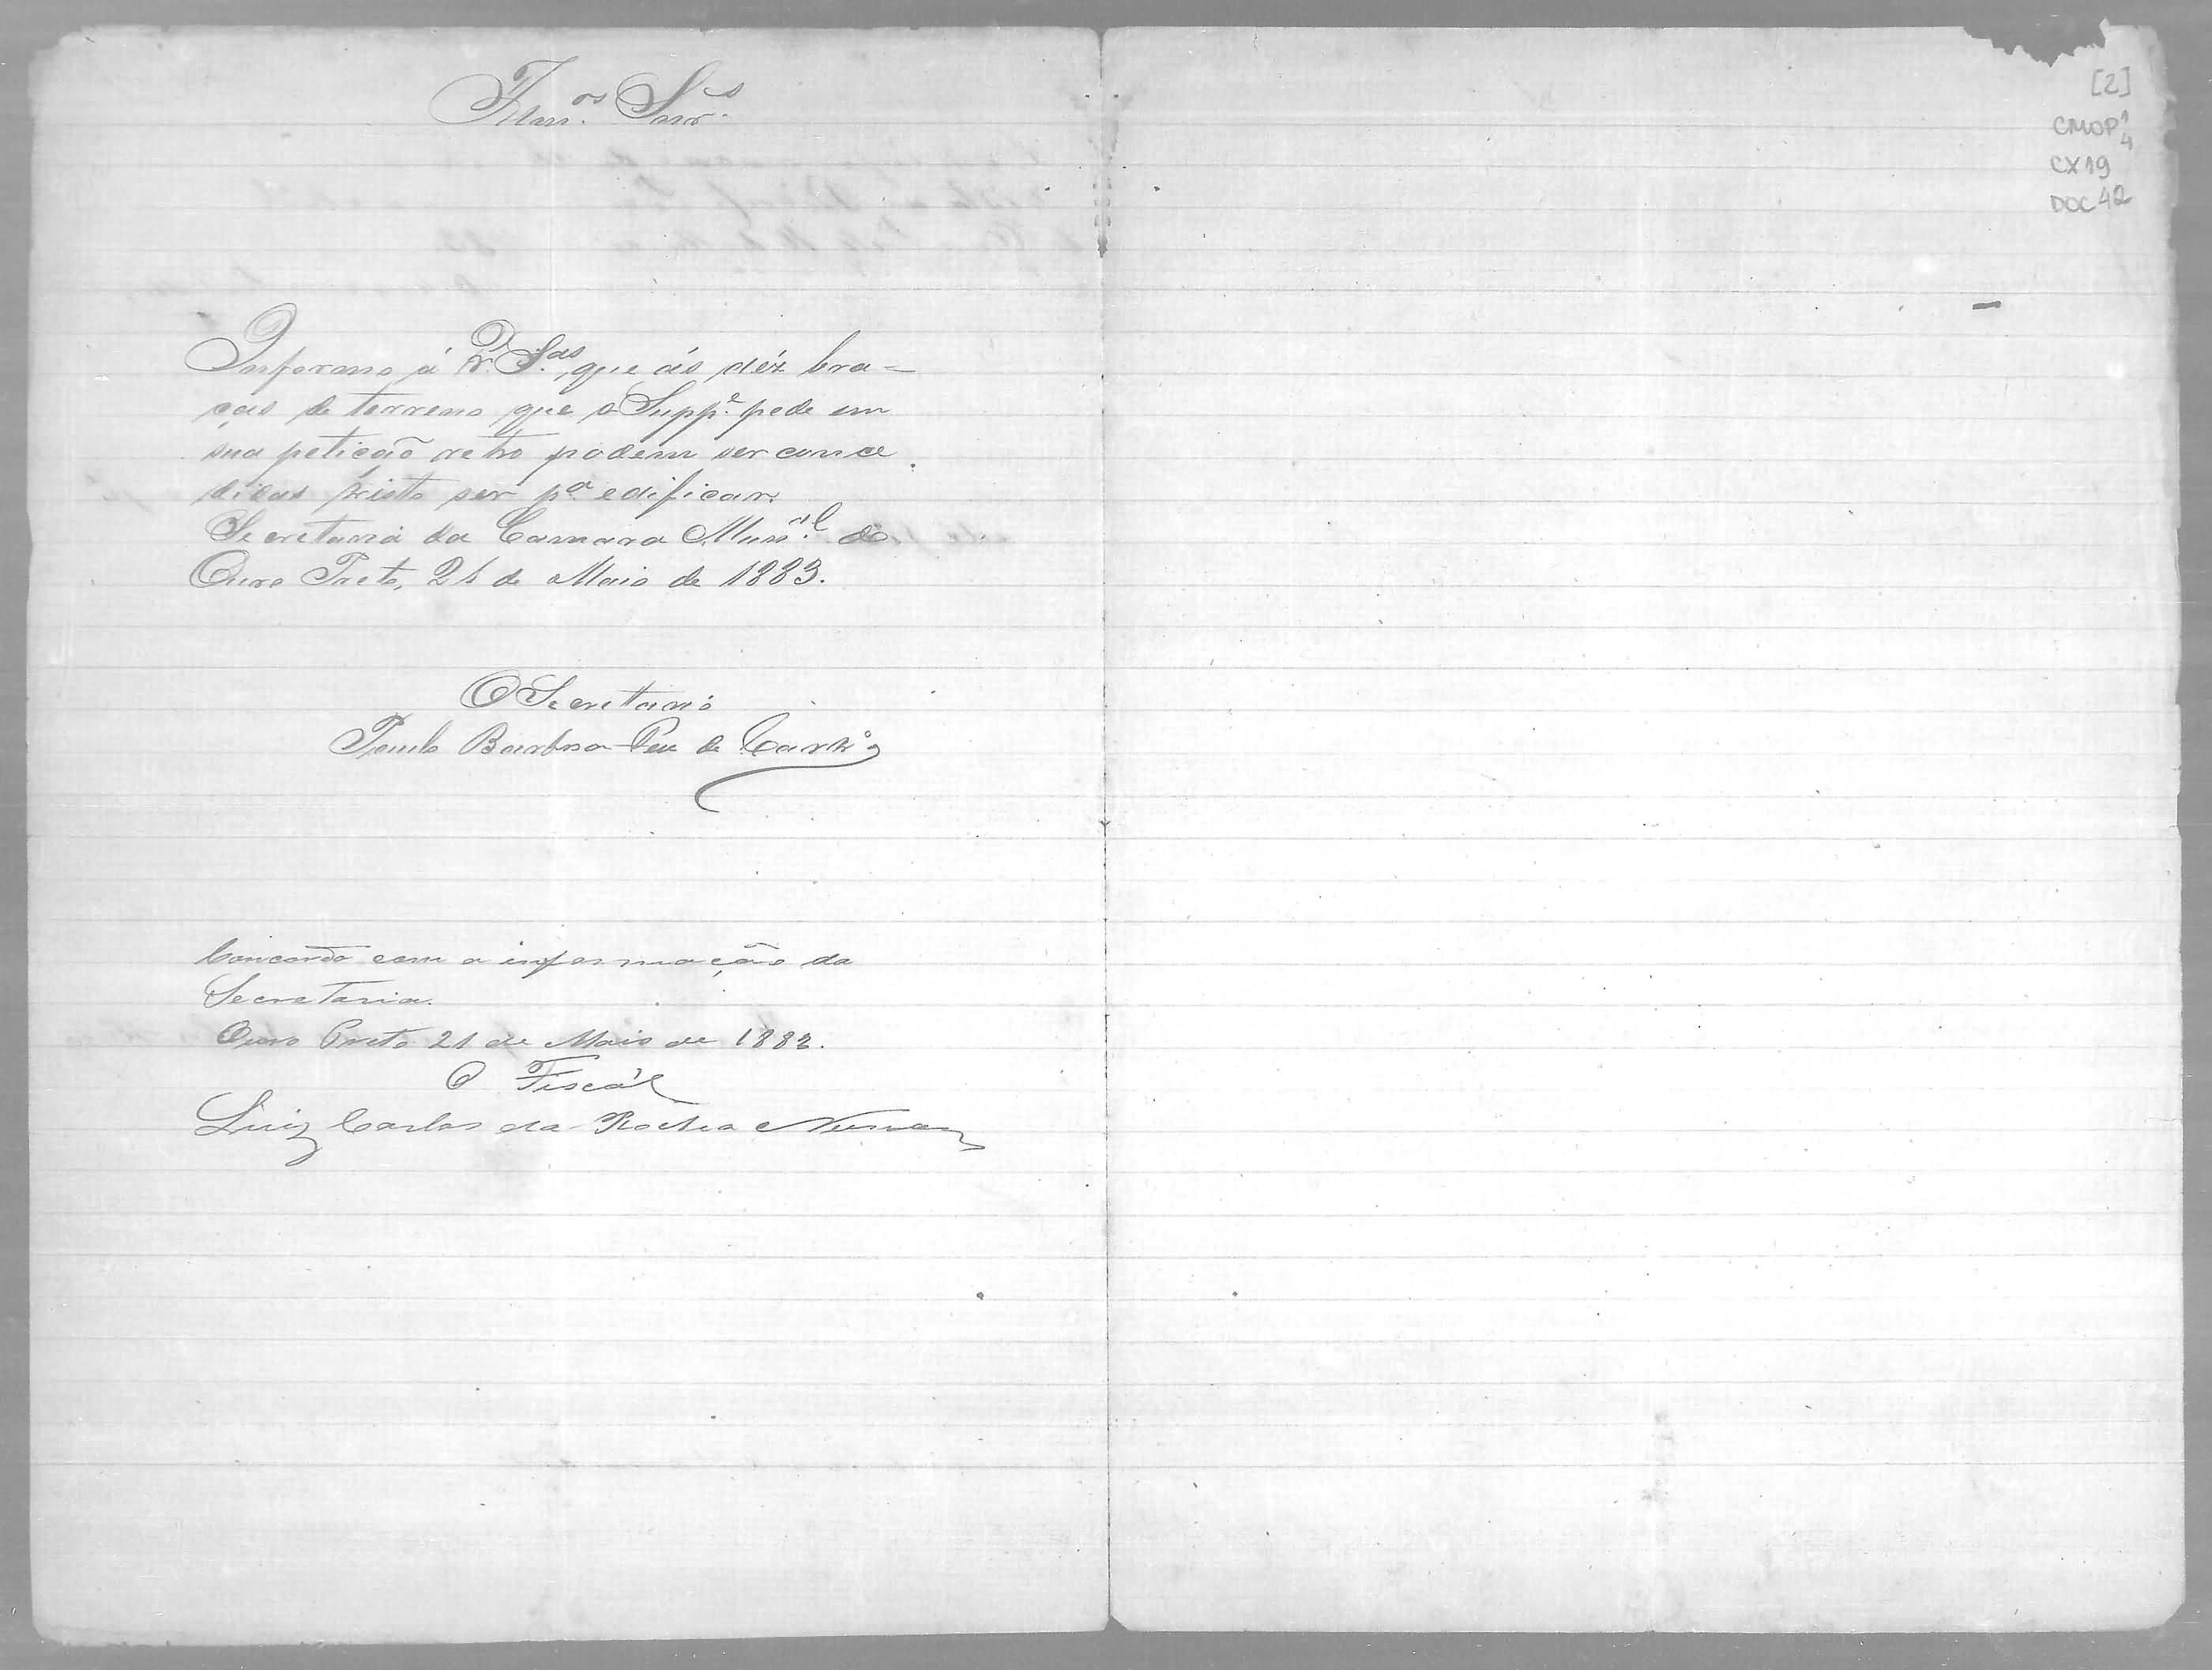 Illm.os Snrs.
Informo á V. S.as que ás déz bra=
ças de terreno que o Supp.e pede em
sua petição retro podem ser conce
didas visto ser p.a edificar.
Secretaria da Camara Mun.al de
Ouro Preto, 21 de Maio de 1883.
O Secretario
Paulo Barbosa de
Concordo com a informação da
Secretaria.
Ouro Preto 21 de Maio de 1883.
O Fiscál
Luiz Carlos da Rocha
[2]
CMOP 1
4
CX19
DOC 42